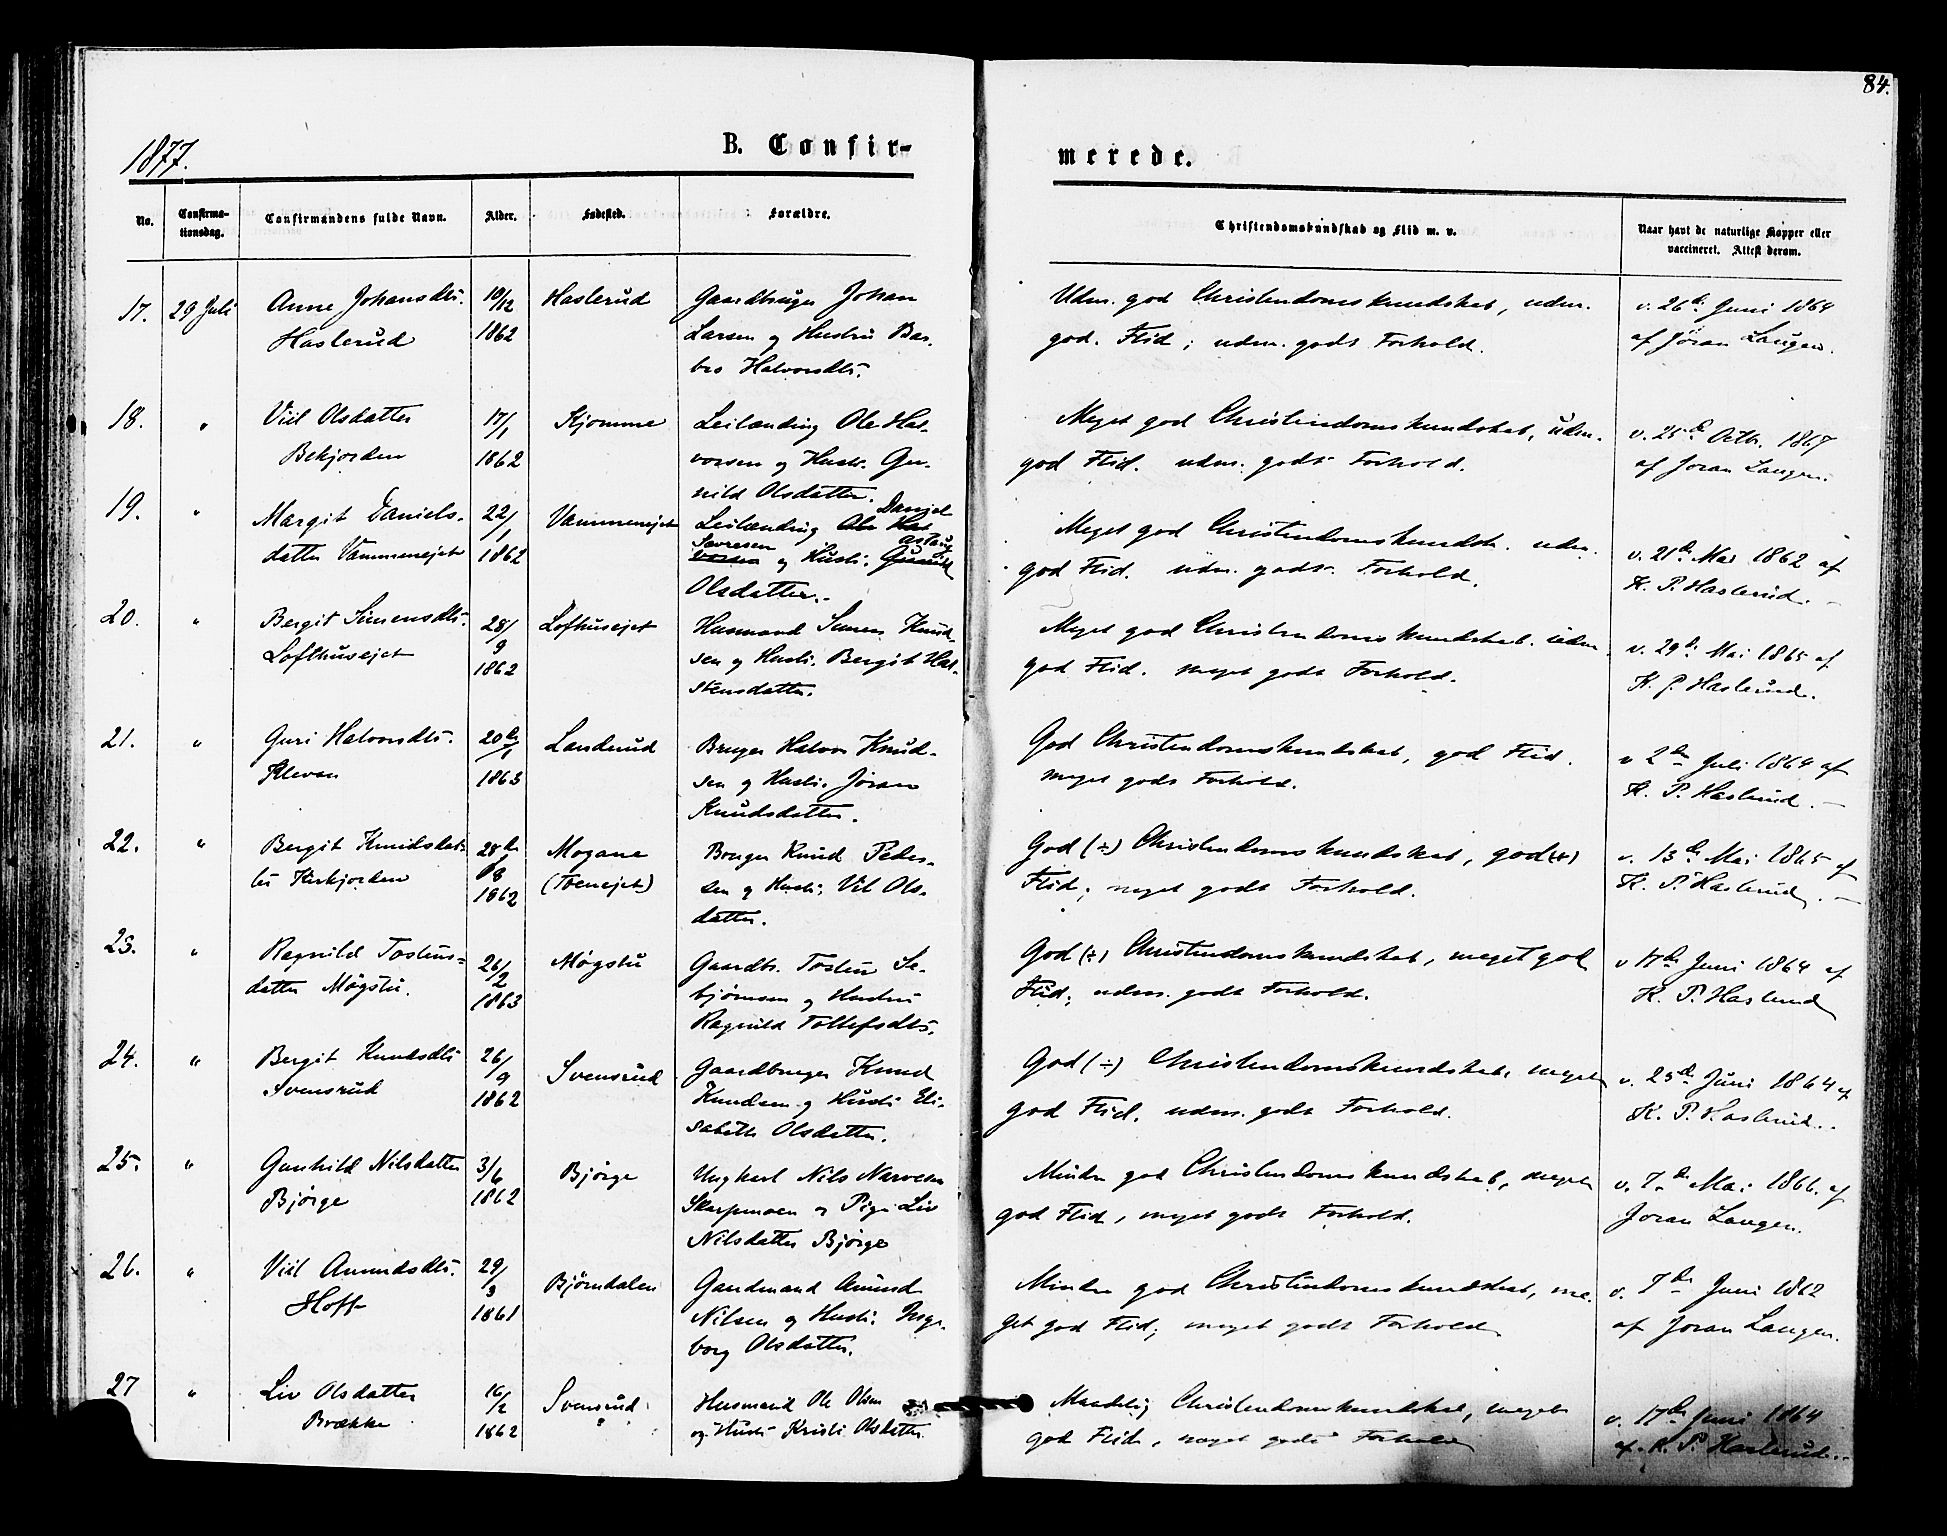 84.
1877.
B. Confir-
merede.
No.
Confirma-
tionsdag.
Confirmandens fulde Navn.
Alder.
Fødested.
Forældre.
Christendomskundskab og Flid m. v.
Naar havt de naturlige Kopper eller
vaccineret. Attest derom.
17. 29 Juli Anne Johansdtr. 10/12 Haslerud Gaardbruger Johan Udm. god Christendomskundskab, udm. v. 26de Juni 1864
Haslerud 1862 Larsen og Hustru Bar- god. Flid; udm. godt Forhold. af Jøran Laugen.
bro Halvorsdtr.
18. " Viil Olsdatter 17/1 Kjomme Leilænding Ole Hal- Meget god Christendomskundskab, udm. v. 25de Octb. 1867
Bekjorden 1862 vorsen og Hustr. Gu- god Flid. udm. godt Forhold. af Joran Laugen.
nild Olsdatter.
19. " Margit Daniels- 22/1 Vammenejet Leilænding Ole Hal Daniel Meget god Christendomskundsk. udm.
datter Vammenejet 1862 vorsen Sørresen og Hustr. Gunnild Aslaug god Flid. udm. godt. Forhold. v. 21de Mai 1862 af
Olsdatter. K. P. Haslerud.
20. " Bergit Simensdtr. 28/9 Lofthusejet Husmand Simen Knud- Meget god Christendomskundskab. udm. v. 29de Mai 1865 af
Lofthusejet 1862 sen og Hustr. Bergit Hal- god Flid. meget godt Forhold. K. P. Haslerud.
stensdatter.
21. " Guri Halvorsdtr. 20de/1 Landerud Bruger Halvor Knud- God Christendomskundskab, god Flid. v 2den Juli 1864 af
Klevan 1863 sen og Hustr. Jøran meget godt Forhold. K. P. Haslerud.
Knudsdatter.
22. " Bergit Knudsdat- 28de/8 Mogane Bruger Knud Peder- God (÷) Christendomskundskab, god(+) v. 13de Mai 1865 af
ter Kirkjorden 1862 (Tvenejet) sen og Hustr. Vil Ols- Flid; meget godt Forhold. K. P. Haslerud.
datter.
23. " Ragnild Tostens- 26/2 Møgstu Gaardb. Tosten Se- God (÷) Christendomskundskab, meget god v 17de Juni 1864 af
datter Møgstu. 1863 bjørnsen og Hustru Flid; udm. godt Forhold. K. P. Haslerud
Ragnild Tollefsdtr.
24. " Bergit Knudsdtr 26/9 Svensrud Gaardbruger Knud God (÷) Christendomskundskab. meget v. 25de Juni 1864 af
Svensrud 1862 Knudsen og Hustr Eli- god Flid. udm. godt Forhold. K. P. Haslerud.
sabeth Olsdatter.
25. " Gunhild Nilsdatter 3/6 Bjørge Ungkarl Nils Narvesen Mindre god Christendomskundskab, meget v. 7de Mai 1866. af
Bjørge 1862 Skarpmoen og Pige Liv god Flid, meget godt Forhold. Joran Laugen.
Nilsdatter Bjørge
26. " Viil Amundsdtr. 29/3 Bjørndalen Gaardmand Amund Mindre god Christendomskundskab, me- v. 7de Juni 1862
Hoff 1861 Nilsen og Hustr. Inge- get god Flid; meget godt Forhold af Joran Laugen.
borg Olsdatter.
27 " Liv Olsdatter 16/2 Svensrud Husmand Ole Olsen Maadelig Christendomskundskab, meget v. 17de Juni 1864
Brække 1862 " og Hustr Kristi Olsdatter. god Flid, meget godt Forhold af K. P. Haslerud.